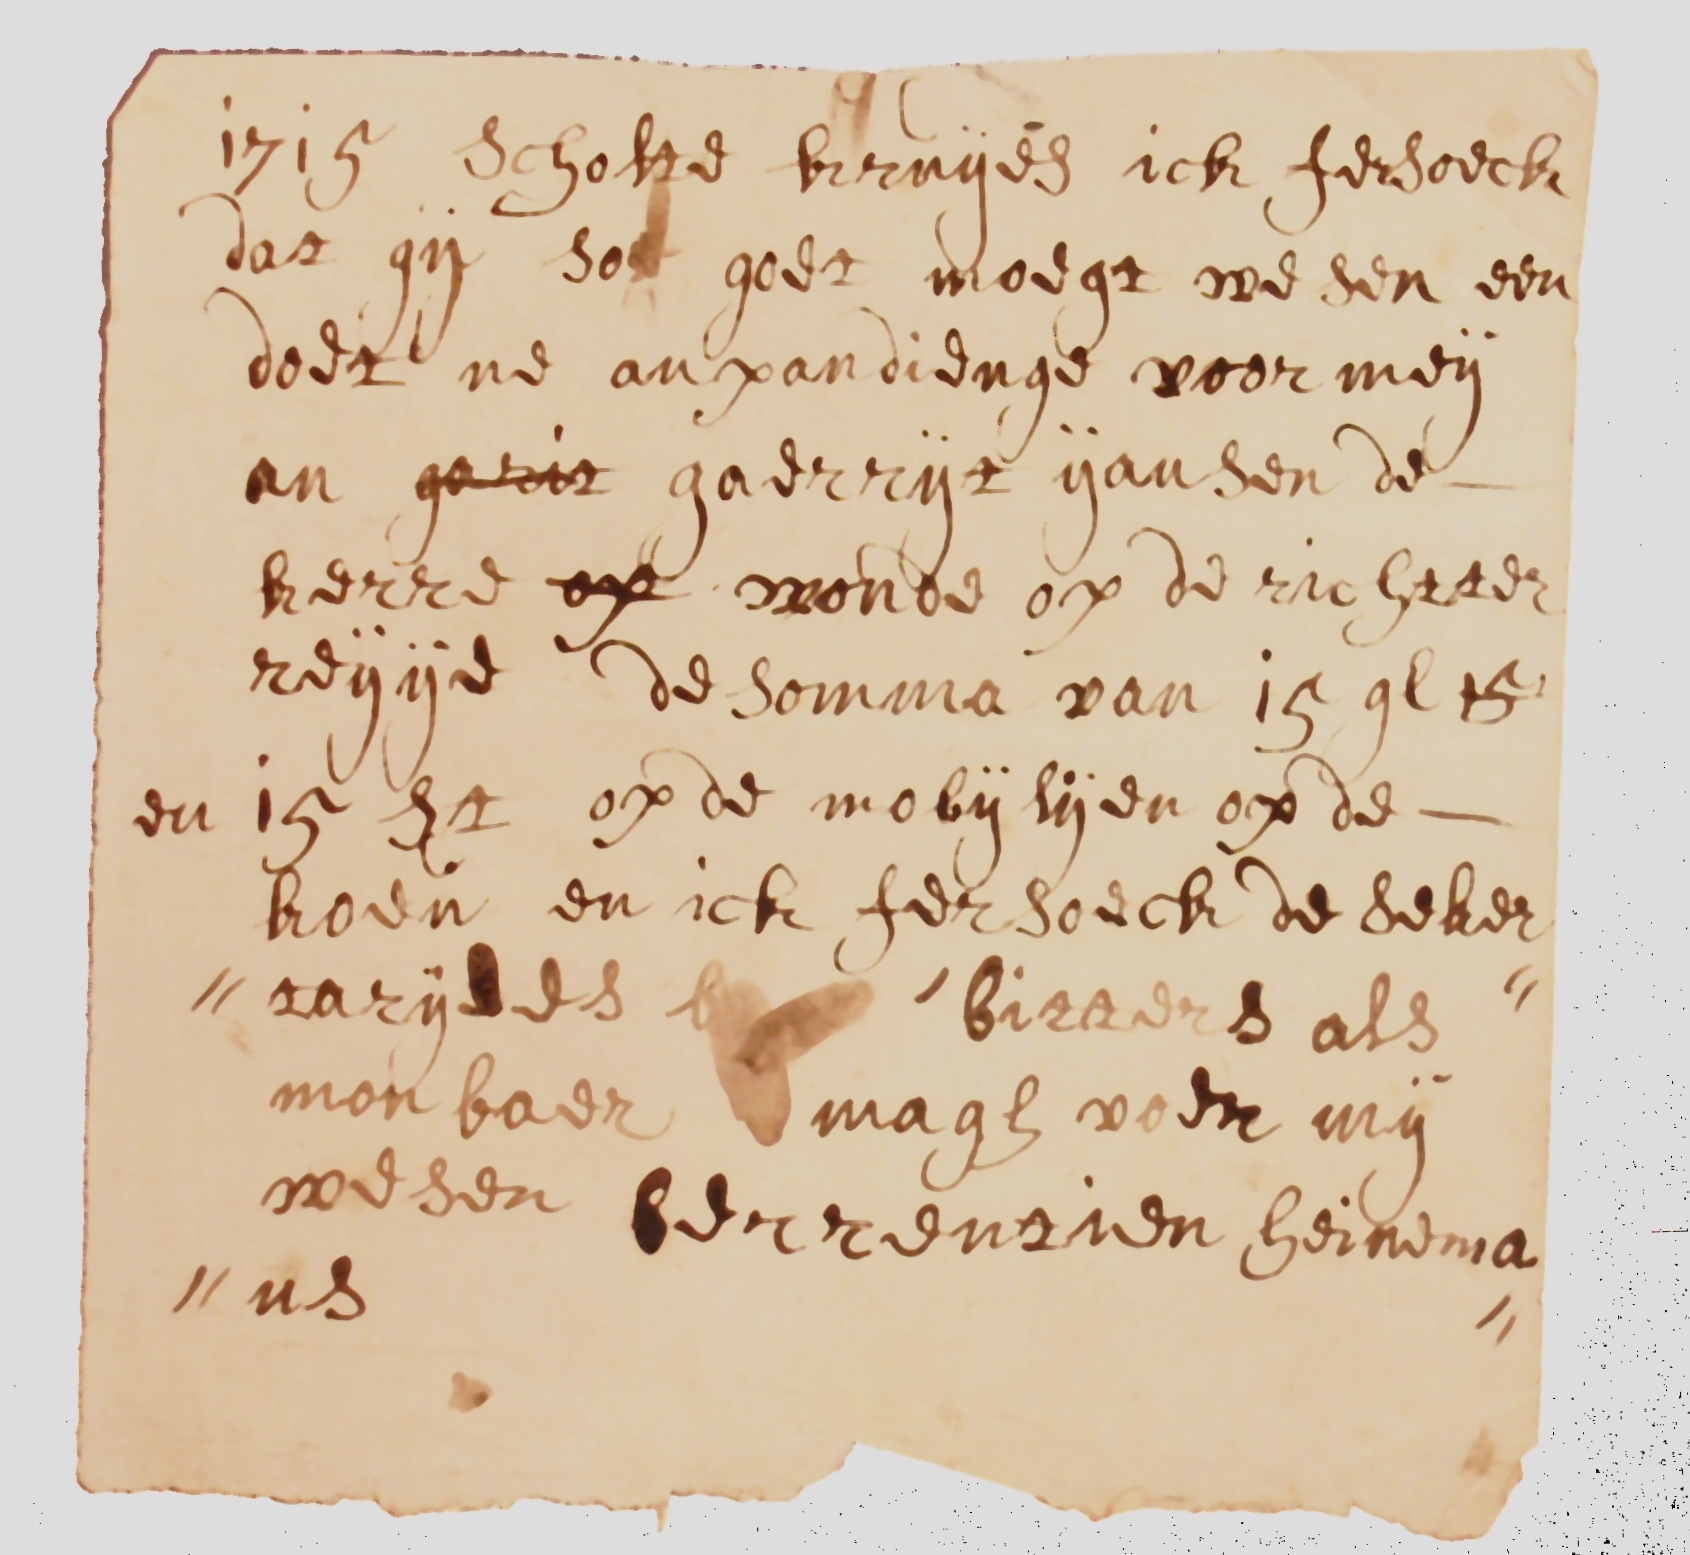 1715 scholte krruijes ick fersoeck
dat gij so godt moegt we sen een
doet ne anpandienge voor meij
an gerit gaerrijt ijansen de
kerre op wonde op de richtter
reijije de somma van 15 gl 15
en 15 st op de mobijlijen op de
koein en ick fersoeck de seker
" tarijes bitters als "
monbaer magh voer mij
we sen berrentien heinema
" ns "